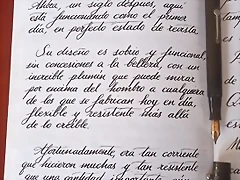 Ahora, un siglo después, aquí
está funcionando como el primer
día, en perfecto estado de revista.
Su diseño es sobrio y funcional,
sin concesiones a la belleza, con un
increíble plumín que puede mirar
por encima del hombro a cualquiera
de los que se fabrican hoy en día,
flexible y resistente más allá
de lo creíble.
Afortunadamente, era tan corriente
que hicieron muchas y tan resistente
que una cantidad importante